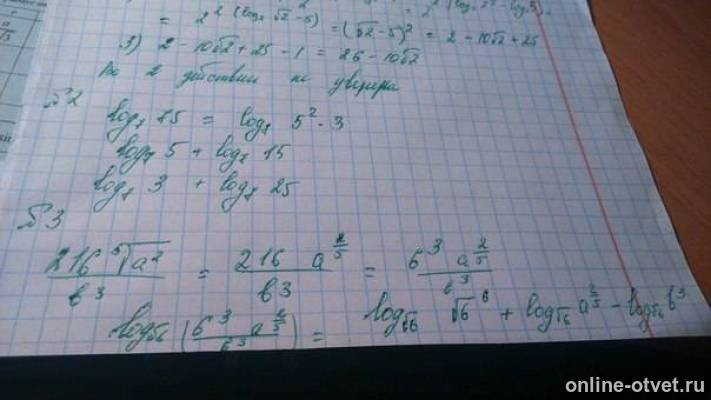 = 2^{2 (log_2 √2 - 5)} = (√2 - 5)² = 2 - 10√2 + 25
3) 2 - 10√2 + 25 - 1 = 26 - 10√2
Во 2 действии не уверена
№2
log₇ 75 = log₇ 5² · 3
log₇ 5 + log₇ 15
log₇ 3 + log₇ 25
№3
\frac{216 \sqrt[5]{a²}}{b³} = \frac{216 a^{2/5}}{b³} = \frac{6³ a^{2/5}}{b³}
log_{√6} (\frac{6³ a^{2/5}}{b³}) = log_{√6} √6⁶ + log_{√6} a^{2/5} - log_{√6} b³
online-otvet.ru